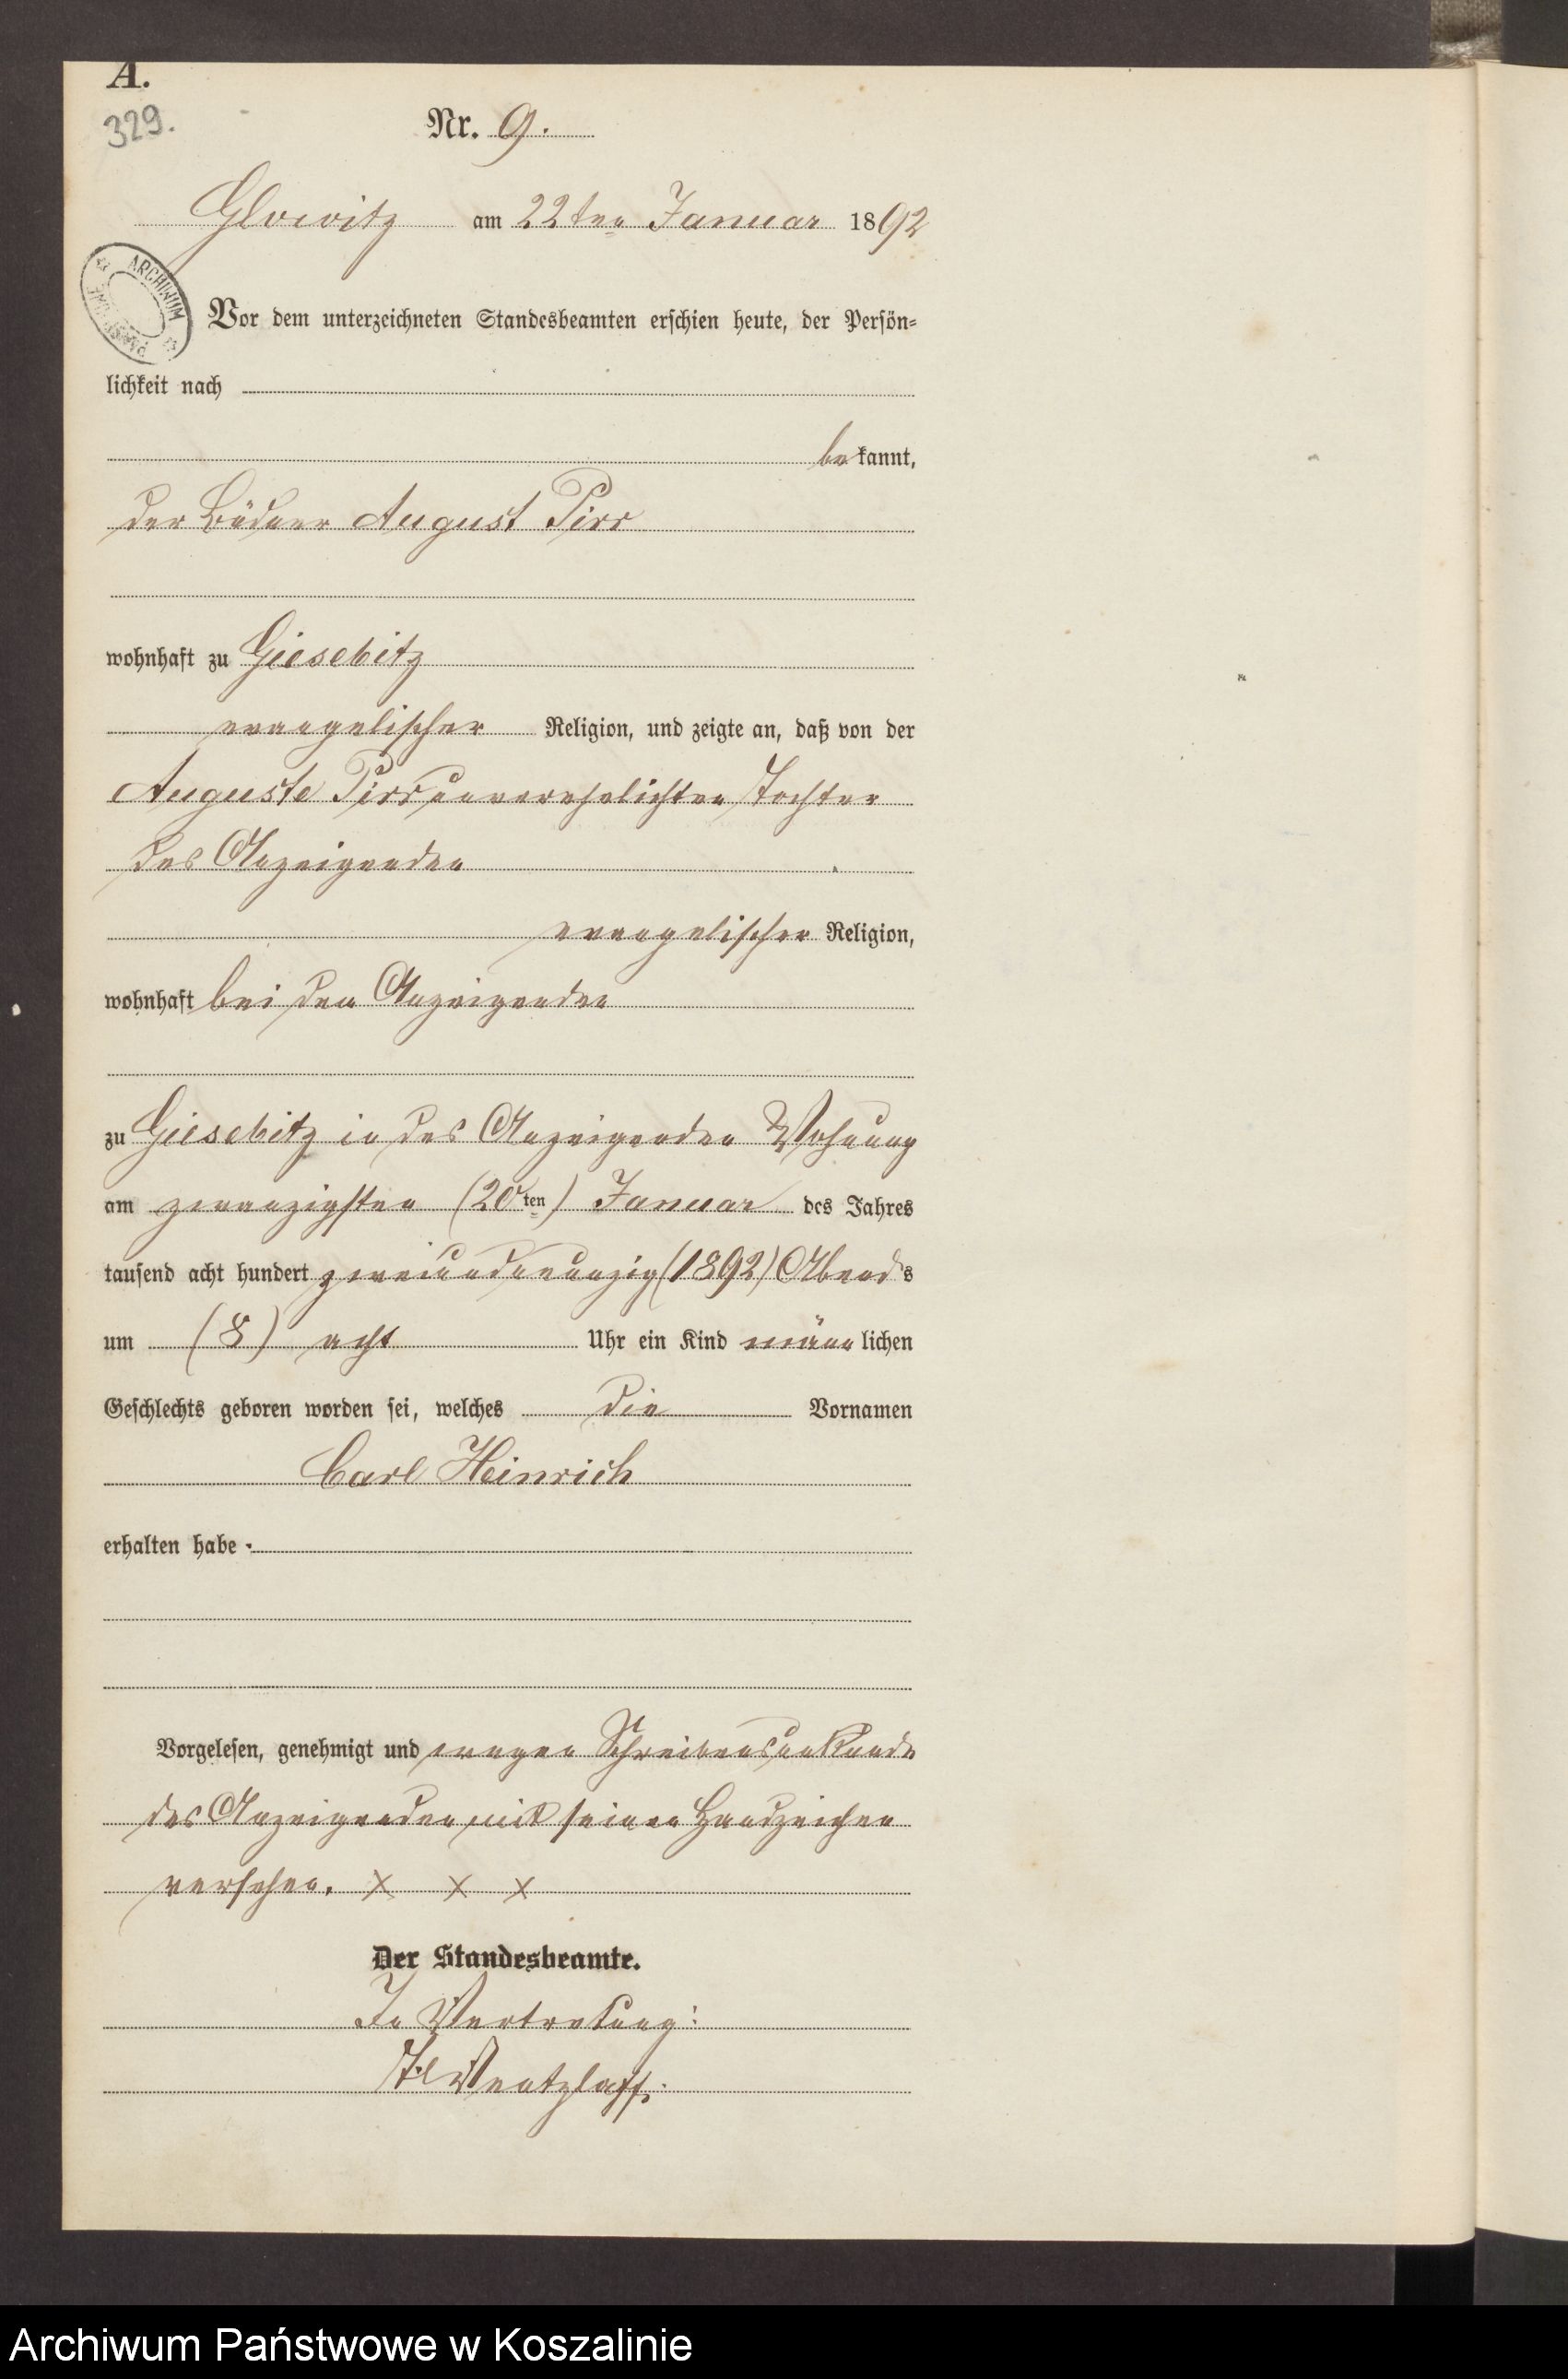 A.
329.
Nr. 9.
Glowitz am 22ten Januar 1892
ARCHIWUM
Vor dem unterzeichneten Standesbeamten erschien heute, der Persön-
lichkeit nach
bekannt,
der Büdner August Pirr
wohnhaft zu Giesebitz
evangelischer Religion, und zeigte an, daß von der
Auguste Pirr unverehelichten Tochter
des Anzeigenden
evangelischer Religion,
wohnhaft bei dem Anzeigenden
zu Giesebitz in des Anzeigenden Wohnung
am zwanzigsten (20ten) Januar des Jahres
tausend acht hundert zweiundneunzig (1892) Abends
um (8) acht Uhr ein Kind männlichen
Geschlechts geboren worden sei, welches die Vornamen
Carl Heinrich
erhalten habe.
Vorgelesen, genehmigt und wegen Schreibensunkunde
des Anzeigenden mit seinem Handzeichen
versehen. x x x
Der Standesbeamte.
In Vertretung:
Wentzlaff.
Archiwum Państwowe w Koszalinie